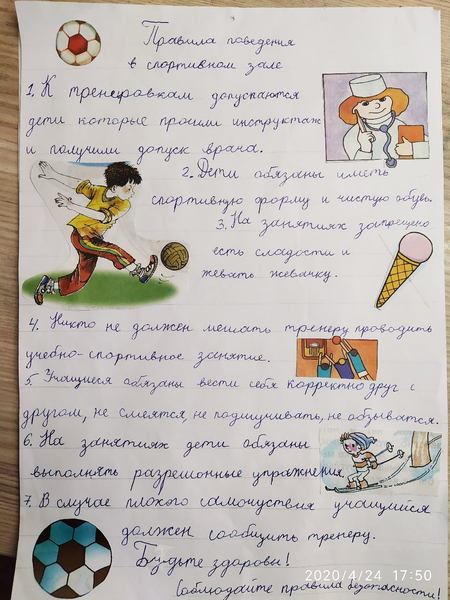 Правила поведения
в спортивном зале
1. К тренировкам допускаются
дети которые прошли инструктаж
и получили допуск врача.
2. Дети обязаны иметь
спортивную форму и чистую обувь.
3. На занятиях запрещено
есть сладости и
жевать жевачку.
4. Никто не должен мешать тренеру проводить
учебно-спортивное занятие.
5. Учащиеся обязаны вести себя корректно друг с
другом, не смеятся, не подшучивать, не обзыватся.
6. На занятиях дети обязаны
выполнять разрешонные упражнения
7. В случае плохого самочуствия учащийся
должен сообщить тренеру.
Будьте здоровы!
Соблюдайте правила безопасности!
2020/4/24 17:50